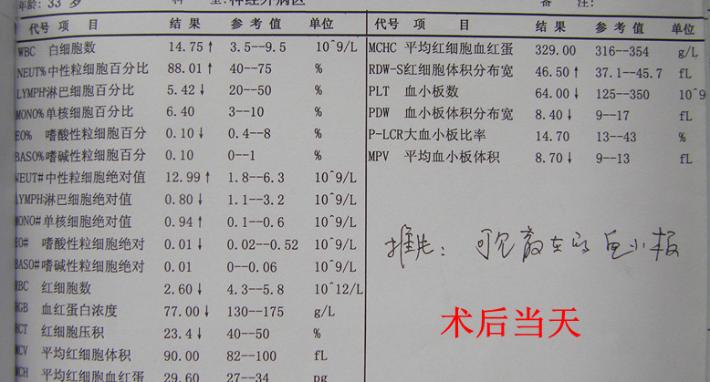 年龄: 33 岁 科 室:神经外病区 备 注:
代号 项 目 结 果 参 考 值 单位
WBC 白细胞数 14.75↑ 3.5--9.5 10^9/L
NEUT%中性粒细胞百分比 88.01↑ 40--75 %
LYMPH淋巴细胞百分比 5.42↓ 20--50 %
MONO%单核细胞百分比 6.40 3--10 %
EO% 嗜酸性粒细胞百分 0.10↓ 0.4--8 %
BASO%嗜碱性粒细胞百分 0.10 0--1 %
NEUT#中性粒细胞绝对值 12.99↑ 1.8--6.3 10^9/L
LYMPH淋巴细胞绝对值 0.80↓ 1.1--3.2 10^9/L
MONO#单核细胞绝对值 0.94↑ 0.1--0.6 10^9/L
EO# 嗜酸性粒细胞绝对 0.01↓ 0.02--0.52 10^9/L
BASO#嗜碱性粒细胞绝对 0.01 0--0.06 10^9/L
RBC 红细胞数 2.60↓ 4.3--5.8 10^12/L
HGB 血红蛋白浓度 77.00↓ 130--175 g/L
HCT 红细胞压积 23.4↓ 40--50 %
MCV 平均红细胞体积 90.00 82--100 fL
MCH 平均红细胞血红蛋 29.60 27--34 pg
代号 项 目 结 果 参 考 值 单位
MCHC 平均红细胞血红蛋 329.00 316--354 g/L
RDW-S红细胞体积分布宽 46.50↑ 37.1--45.7 fL
PLT 血小板数 64.00↓ 125--350 10^9
PDW 血小板体积分布宽 8.40↓ 9--17 fL
P-LCR大血小板比率 14.70 13--43 %
MPV 平均血小板体积 8.70↓ 9--13 fL
推片: 可见散在的血小板
术后当天